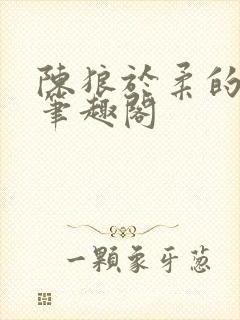 陳狼於柔的
筆趣閣
一顆象牙蔥